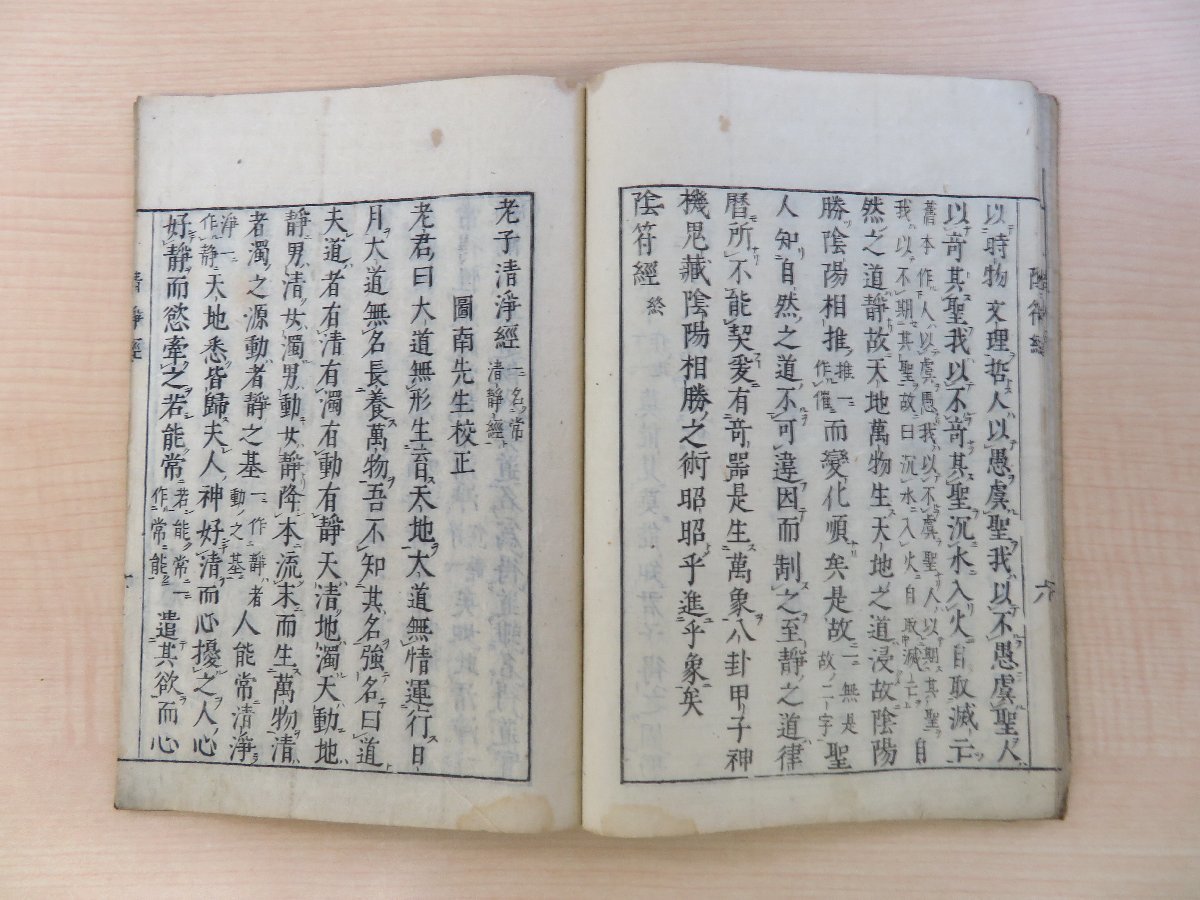 陰符經
六
以時物文理哲人以愚虞聖我以不愚虞聖人
以竒其聖我以不竒其聖沉水入火自取滅亡
舊本作人以虞愚我以不虞聖人以期其聖
我以不期其聖故曰沉水入火自取滅亡
自
然之道靜故天地萬物生天地之道浸故陰陽
勝陰陽相推
推一
作催
而變化順矣是故
一無是
故二字
聖
人知自然之道不可違因而制之至靜之道律
曆所不能契爰有竒器是生萬象八卦甲子神
機鬼藏陰陽相勝之術昭昭乎進乎象矣
陰符經
終
老子清淨經
一名常
清靜經
圖南先生校正
老君曰大道無形生育天地大道無情運行日
月大道無名長養萬物吾不知其名強名曰道
夫道者有清有濁有動有靜天清地濁天動地
靜男清女濁男動女靜降本流末而生萬物清
者濁之源動者靜之基
一作靜者
動之基
人能常清淨
淨一
作靜
天地悉皆歸夫人神好清而心擾之人心
好靜而慾牽之若能常
若能常一
作常能
遣其欲而心
清靜經